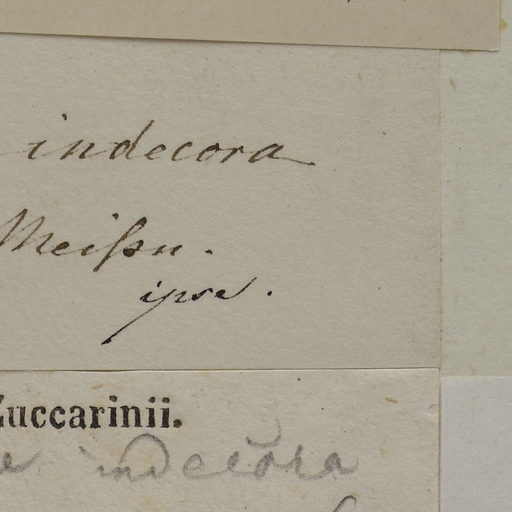 indecora
Meißn.
ipse.
Zuccarinii.
indecora